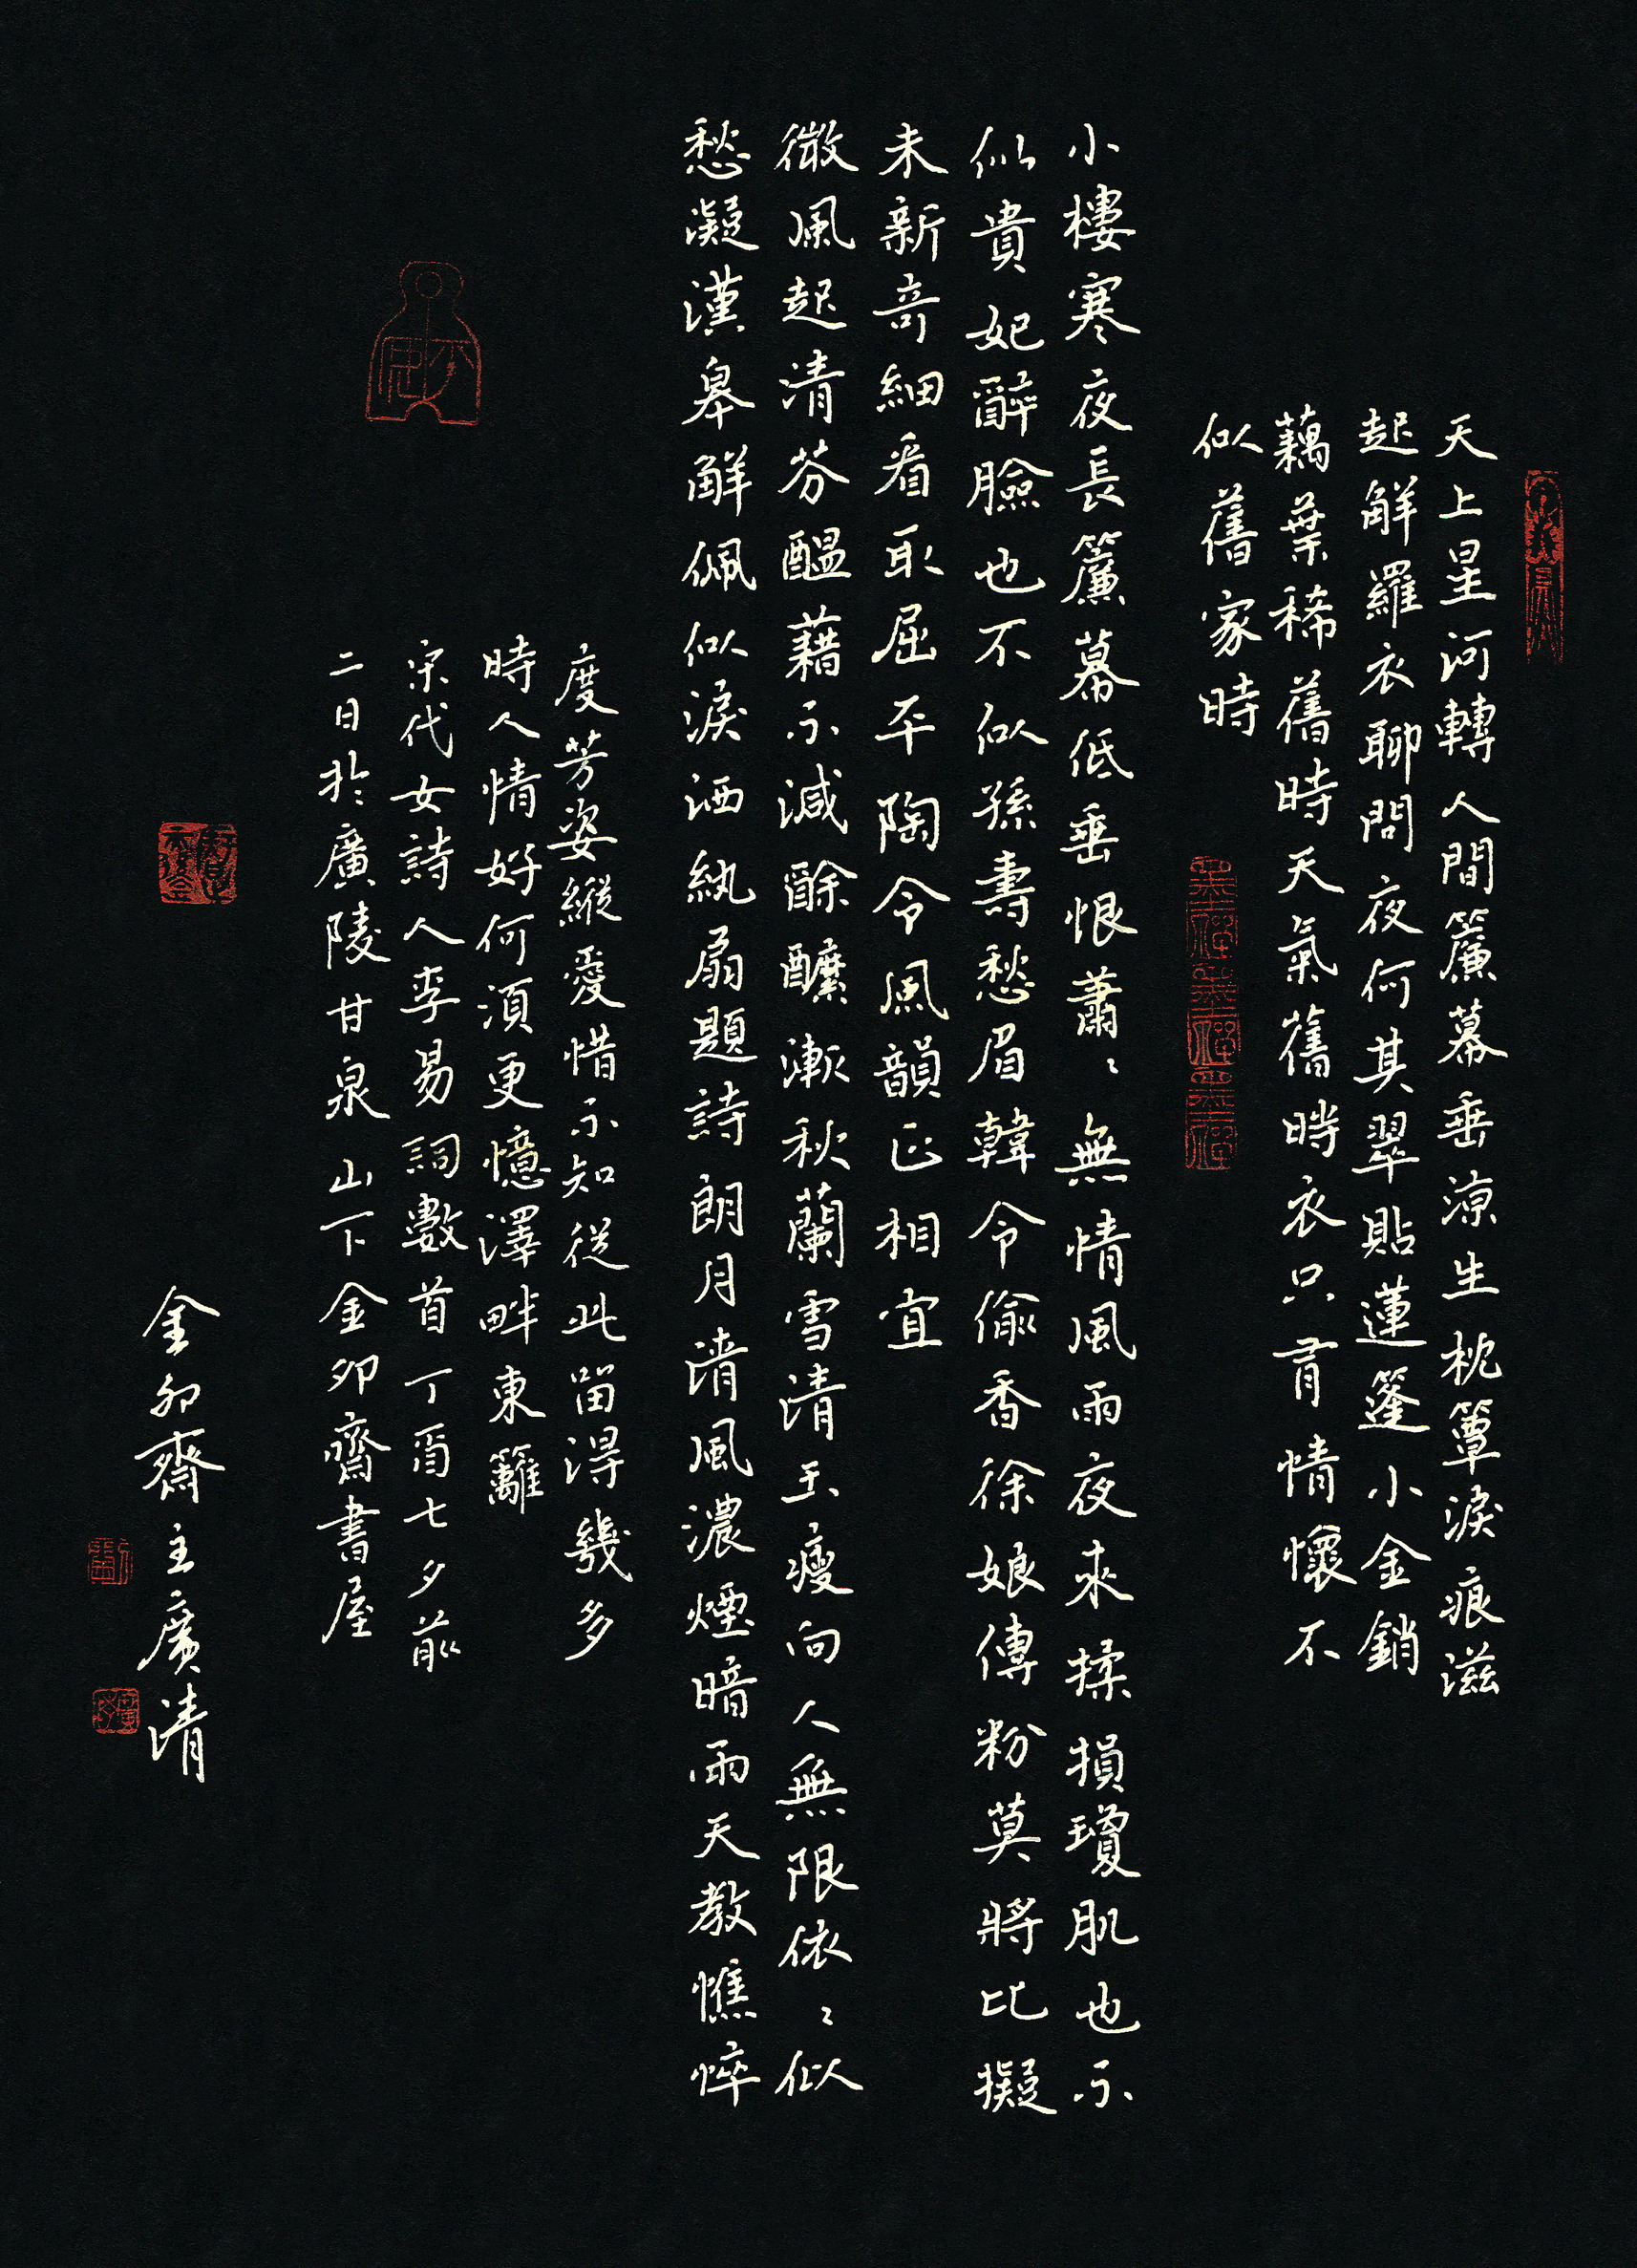 天上星河轉人間簾幕垂涼生枕簟淚痕滋
起解羅衣聊問夜何其翠貼蓮篷小金銷
藕葉稀舊時天氣舊時衣只有情懷不
似舊家時
小樓寒夜長簾幕低垂恨蕭〻無情風雨夜來揉損瓊肌也不
似貴妃醉臉也不似孫壽愁眉韓令偷香徐娘傅粉莫將比擬
未新奇細看取屈平陶令風韻正相宜
微風起清芬醞藉不減酴醾漸秋蘭雪清玉瘦向人無限依〻似
愁凝漢皋解佩似淚洒紈扇題詩朗月清風濃煙暗雨天教憔悴
度芳姿縱愛惜不知從此留得幾多
時人情好何須更憶澤畔東籬
宋代女詩人李易詞數首丁酉七夕前
二日於廣陵甘泉山下金卯齋書屋
金卯齋主廣清